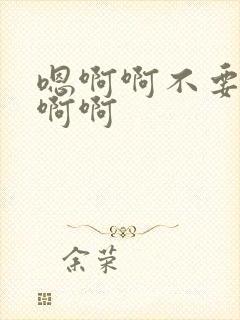 嗯啊啊不要
啊啊
余荣